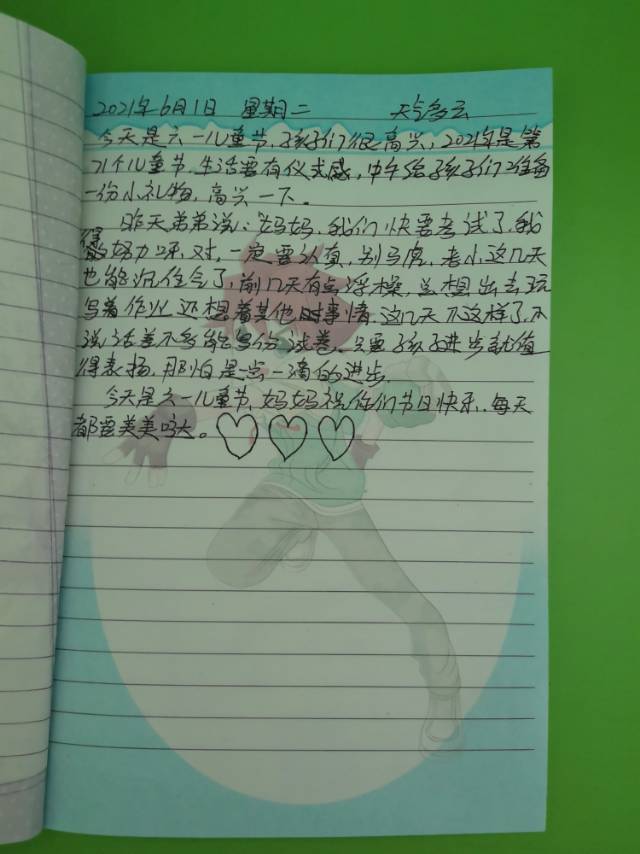 2021年6月1日 星期二 天气多云
今天是六一儿童节,孩子们很高兴,2021年是第
71个儿童节,生活要有仪式感,中午给孩子们准备
一份小礼物,高兴一下。
昨天弟弟说:"妈妈,我们快要考试了,我
得努力呀,对,一定要认真,别马虎,老小这几天
也能沉住气了,前几天有点浮燥,总想出去玩
写着作业还想着其他的事情,这几天不这样了,不
说话差不多能写份试卷,只要孩子进步就值
得表扬,那怕是当一滴的进步,
今天是六一儿童节,妈妈祝你们节日快乐,每天
都要美美哒。